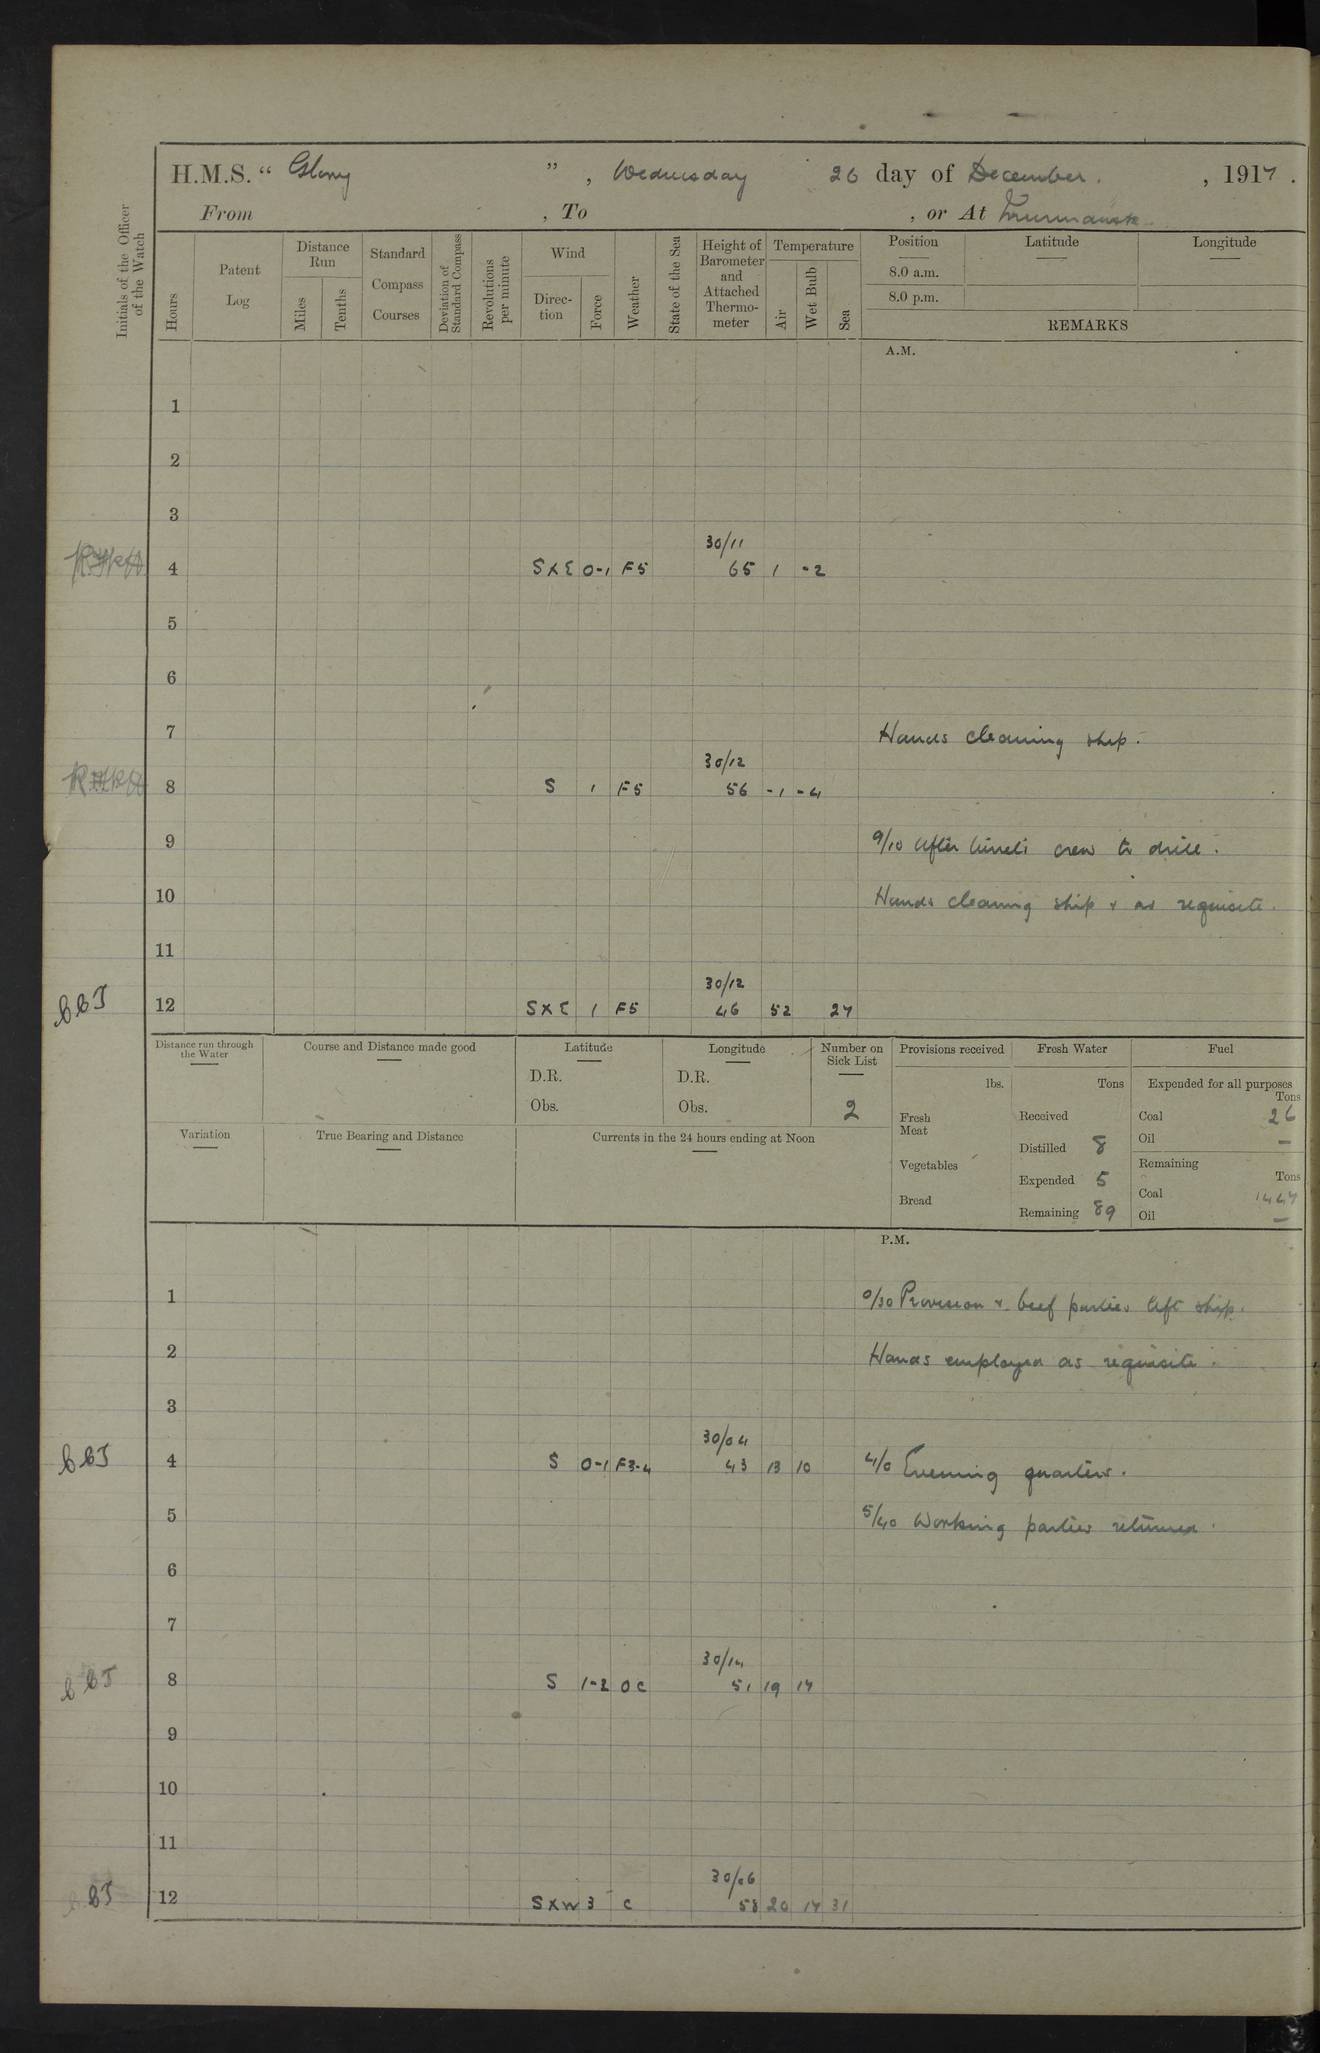 H.M.S. “ Glory ” , Wednesday 26 day of December . , 1917 .
From , To , or At Murmansk
Initials of the Officer of the Watch
Hours
Patent Log
Distance Run
Miles
Tenths
Standard Compass Courses
Deviation of Standard Compass
Revolutions per minute
Wind
Direc-tion
Force
Weather
State of the Sea
Height of Barometer and Attached Thermo-meter
Temperature
Air
Wet Bulb
Sea
Position
Latitude
Longitude
8.0 a.m.
8.0 p.m.
REMARKS
A.M.
1
2
3
30/11
4 S X E 0-1 F5 65 1 -2
5
6
7 Hands cleaning ship.
30/12
8 S 1 F5 56 -1 -4
9 9/10 After turrets crew to drill.
10 Hands cleaning ship & as requisite.
11
30/12
BBJ 12 S X E 1 F5 46 52 27
Distance run through the Water
Course and Distance made good
Latitude
D.R.
Obs.
Longitude
D.R.
Obs.
Number on Sick List
2
Variation
True Bearing and Distance
Currents in the 24 hours ending at Noon
Provisions received
lbs.
Fresh Meat
Vegetables
Bread
Fresh Water
Tons
Received
Distilled 8
Expended 5
Remaining 89
Fuel
Expended for all purposes
Tons
Coal 26
Oil —
Remaining
Tons
Coal 1447
Oil —
P.M.
1 0/30 Provision & beef parties left ship.
2 Hands employed as requisite.
3
30/04
BBJ 4 S 0-1 F3-4 43 13 10 4/0 Evening quarters.
5 5/40 Working parties returned.
6
7
30/14
BBJ 8 S 1-2 O C 51 19 17
9
10
11
30/06
BBJ 12 S X W 3 C 58 20 17 31